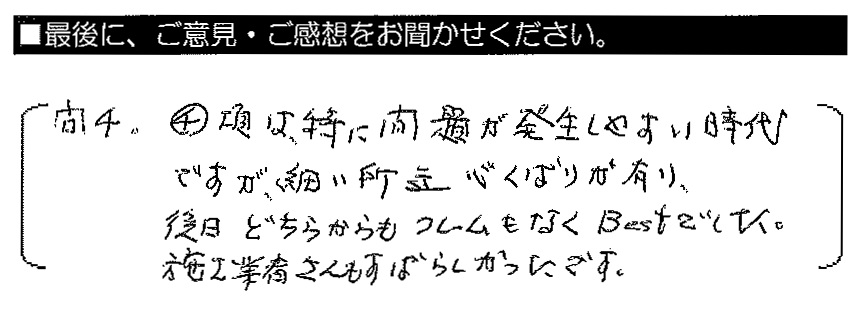 ■最後に、ご意見・ご感想をお聞かせください。
問4。④項は、特に問題が発生しやすい時代
ですが、細い所迄心くばりが有り、
後日どちらからもクレームもなくBestでした。
施工業者さんもすばらしかったです。